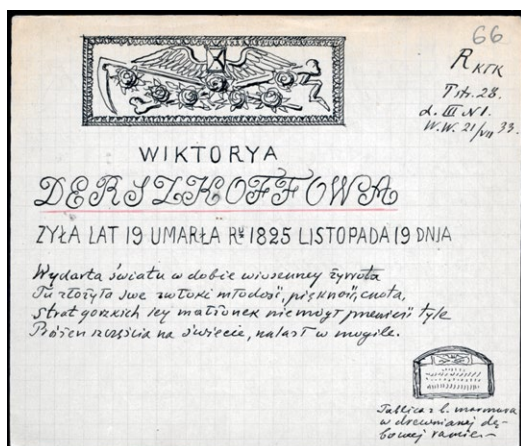 66
R KFK
T. it. 28.
d. III N 1.
W.W. 21/VII 33.
WIKTORYA
DERSZKOFFOWA
ŻYŁA LAT 19 UMARŁA Rᵘ 1825 LISTOPADA 19 DNIA
Wydarta światu w dobie wiosenney żywota
Tu złożyła swe zwłoki młodość, piękność, cnota,
Strat gorzkich iey małżonek niemógł przenieść tyle
Próżen szczęścia na świecie, nalazł w mogile.
Tablica z b. marmuru
w drewnianej dę-
bowej ramie